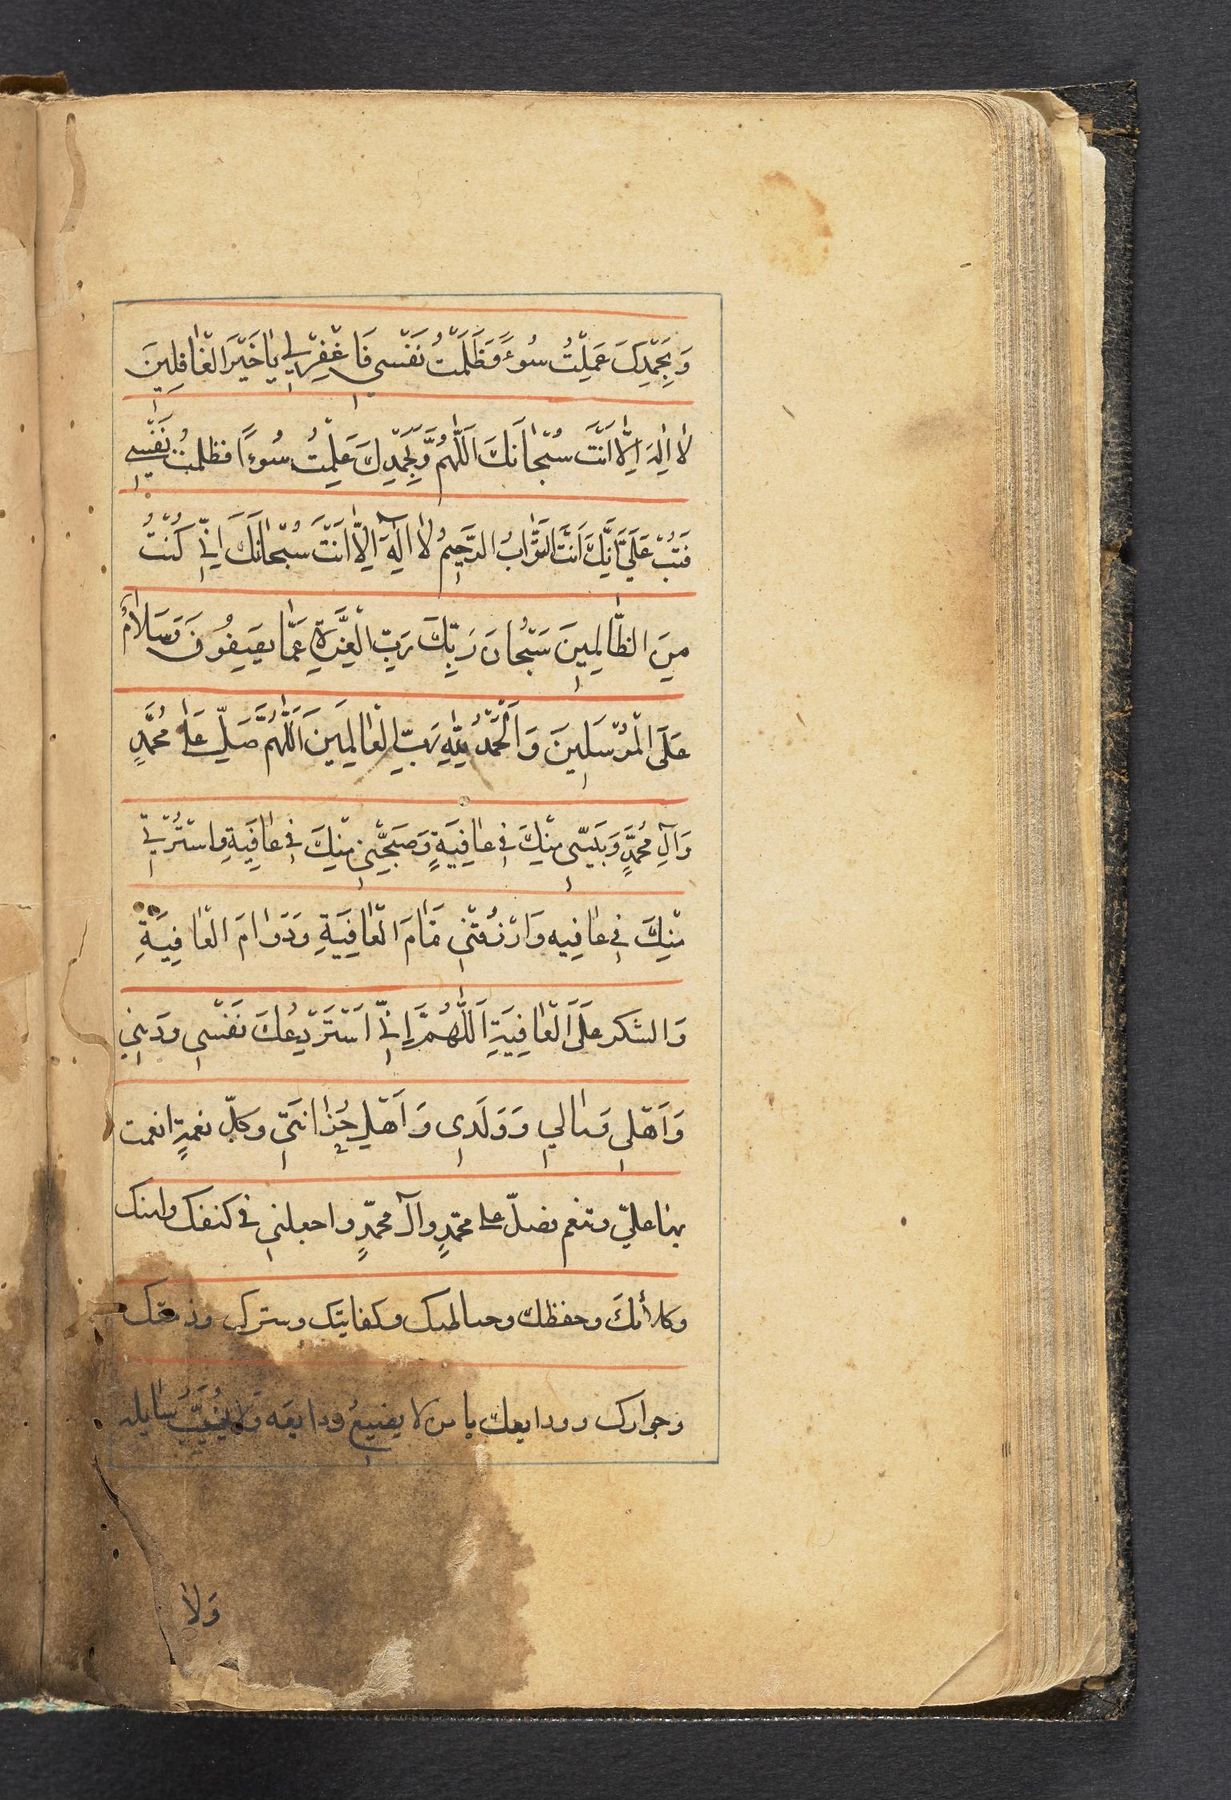 وَبِحَمْدِكَ عَمِلْتُ سُوءً فَظَلَمْتُ نَفْسِي فَاغْفِرْ لِي يَا خَيْرَ الْغَافِلِينَ
لَا اِلَهَ اِلَّا اَنْتَ سُبْحَانَكَ اَللَّهُمَّ وَبِحَمْدِكَ عَمِلْتُ سُوءًا فظلمتُ نَفْسِي
فَتُبْ عَلَيَّ اِنَّكَ اَنْتَ التَّوَّابُ الرَّحِيمُ لَا اِلَهَ اِلَّا اَنْتَ سُبْحَانَكَ اِنِّي كُنْتُ
مِنَ الظَّالِمِينَ سُبْحَانَ رَبِّكَ رَبِّ الْعِزَّةِ عَمَّا يَصِفُونَ وَسَلَامٌ
عَلَى الْمُرْسَلِينَ وَالْحَمْدُ لِلَّهِ رَبِّ الْعَالَمِينَ اَللَّهُمَّ صَلِّ عَلَى مُحَمَّدٍ
وَآلِ مُحَمَّدٍ وَبَيِّتْنِي مِنْكَ فِي عَافِيَةٍ وَصَبِّحْنِي مِنْكَ فِي عَافِيَةٍ وَاسْتُرْنِي
مِنْكَ فِي عَافِيه وَارْزُقْنِي تَمَامَ الْعَافِيَةِ وَدَوَامَ الْعَافِيَةِ
وَالشكر عَلَى الْعَافِيَةِ اَللَّهُمَّ اِنِّي اَسْتَوْدِعُكَ نَفْسِي وَدِينِي
وَاَهْلِي وَمَالِي وَوَلَدِي وَاَهْلِ حُزَانَتِي وكلّ نعمةٍ انعمت
بها عليّ وتنعم فصلّ على محمّدٍ وآل محمّدٍ واجعلني في كنفك وامنك
وكلأتك وحفظك وحياطتك وكفايتك وسترك وذمتك
وجوارك وودايعك يا من لا يضيعُ ودايعه وَلا يُخَيِّبُ سَايله
وَلَا